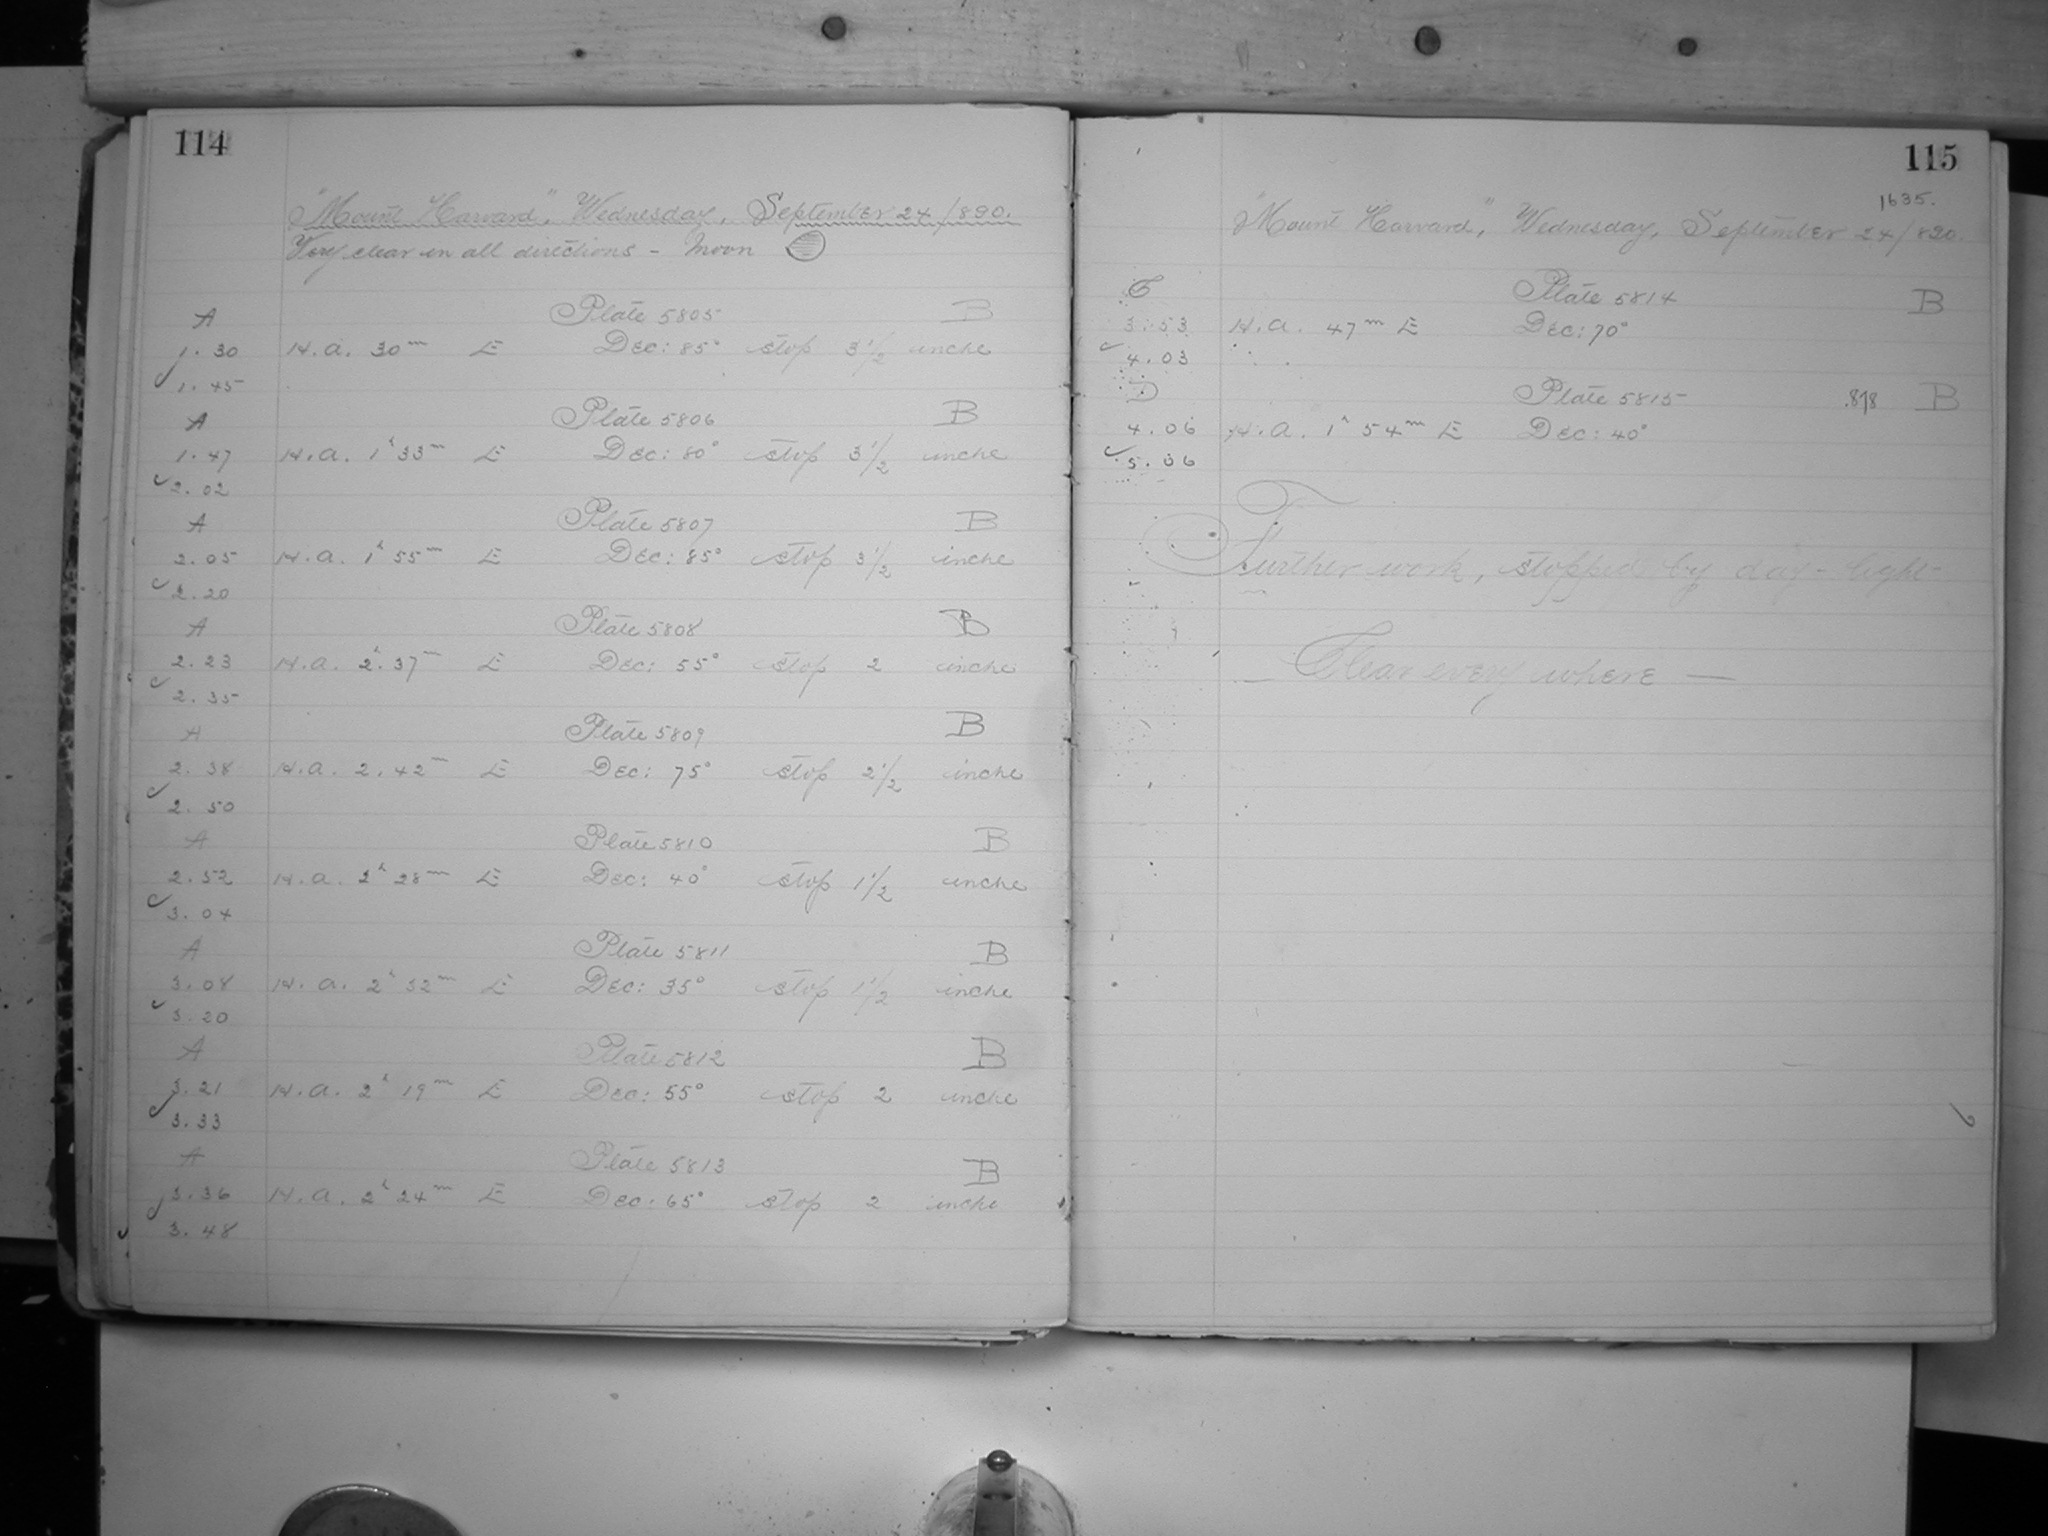 114
"Mount Harvard", Wednesday, September 24/890.
Very clear in all directions - Moon
A Plate 5805 B
1.30 H.a. 30m E Dec: 85° stop 3 1/2 inche
1.45
A Plate 5806 B
1.47 H.a. 1h 33m E Dec: 80° stop 3 1/2 inche
2.02
A Plate 5807 B
2.05 H.a. 1h 55m E Dec: 85° stop 3 1/2 inche
2.20
A Plate 5808 B
2.23 H.a. 2h.37m E Dec: 55° stop 2 inche
2.35
A Plate 5809 B
2.38 H.a. 2.42m E Dec: 75° stop 2 1/2 inche
2.50
A Plate 5810 B
2.52 H.a. 2h 28m E Dec: 40° stop 1 1/2 inche
3.04
A Plate 5811 B
3.08 H.a. 2h 32m E Dec: 35° stop 1 1/2 inche
3.20
A Plate 5812 B
3.21 H.a. 2h 19m E Dec: 55° stop 2 inche
3.33
A Plate 5813 B
3.36 H.a. 2h 24m E Dec: 65° stop 2 inche
3.48
115
1635.
"Mount Harvard", Wednesday, September 24/890.
Plate 5814 B
3.53 H.a. 47m E Dec: 70°
4.03
D Plate 5815 .878 B
4.06 H.a. 1h 54m E Dec: 40°
5.06
Further work, stopped by day-light-
— Clear every where —